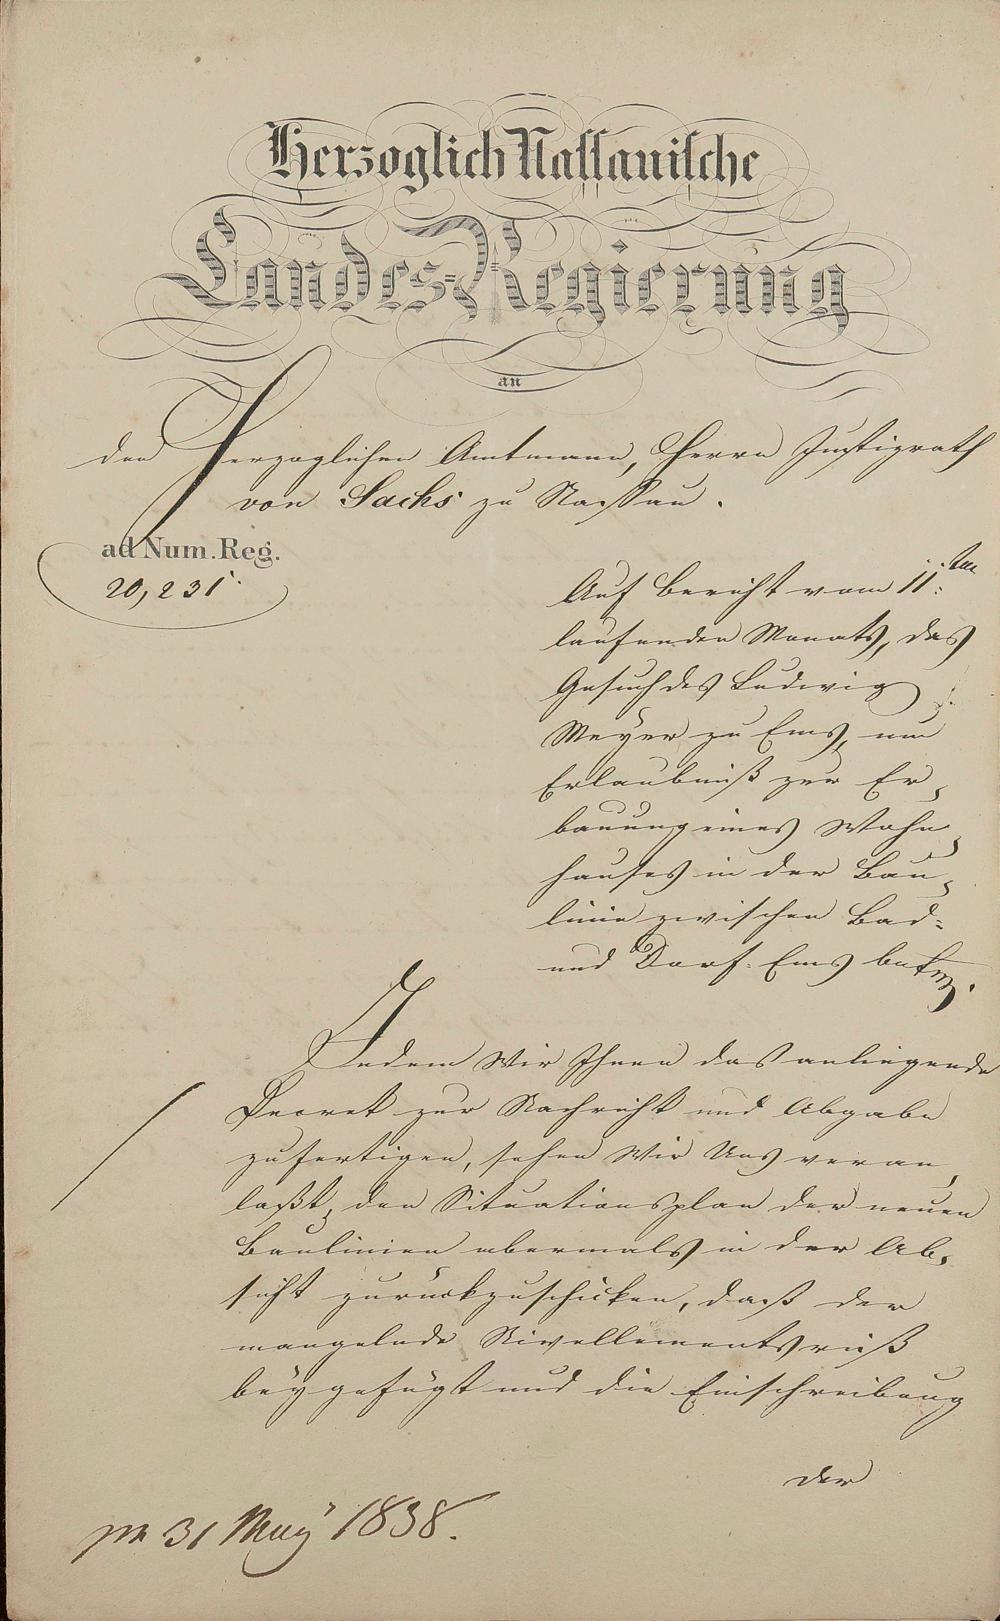 Herzoglich Nassauische
Landes-Regierung
an
den Herzoglichen Amtmann, Herrn Justizrath
von Sachs zu Nassau.
ad Num. Reg.
20,231.
Auf Bericht vom 11ten
laufenden Monats, das
Gesuch des Ludwig
Meyer zu Ems, um
Erlaubniß zur Er-
bauung eines Wohn-
hauses in der Bau-
linie zwischen Bad-
und Dorf-Ems
Indem Wir Ihnen das anliegende
Decret zur Nachricht und Abgabe
zufertigen, sehen Wir Uns veran-
laßt, den Situationsplan der neuen
Baulinien abermals in der Ab-
sicht zurückzuschicken, daß der
mangelnde Nivellementsriß
beygefügt und die Einschreibung
der
31 May 1838.